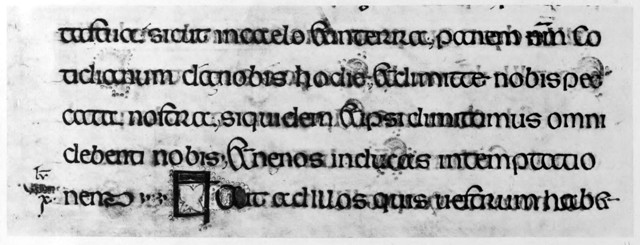 tastua sicut incaelo &interra, panem nrm co
tidianum danobis hodie, &dimitte nobis pec
cata nostra, siquidem &ipsi dimittimus omni
debenti nobis, &nenos inducas intemptatio
nem ait adillos quis uestrum habe